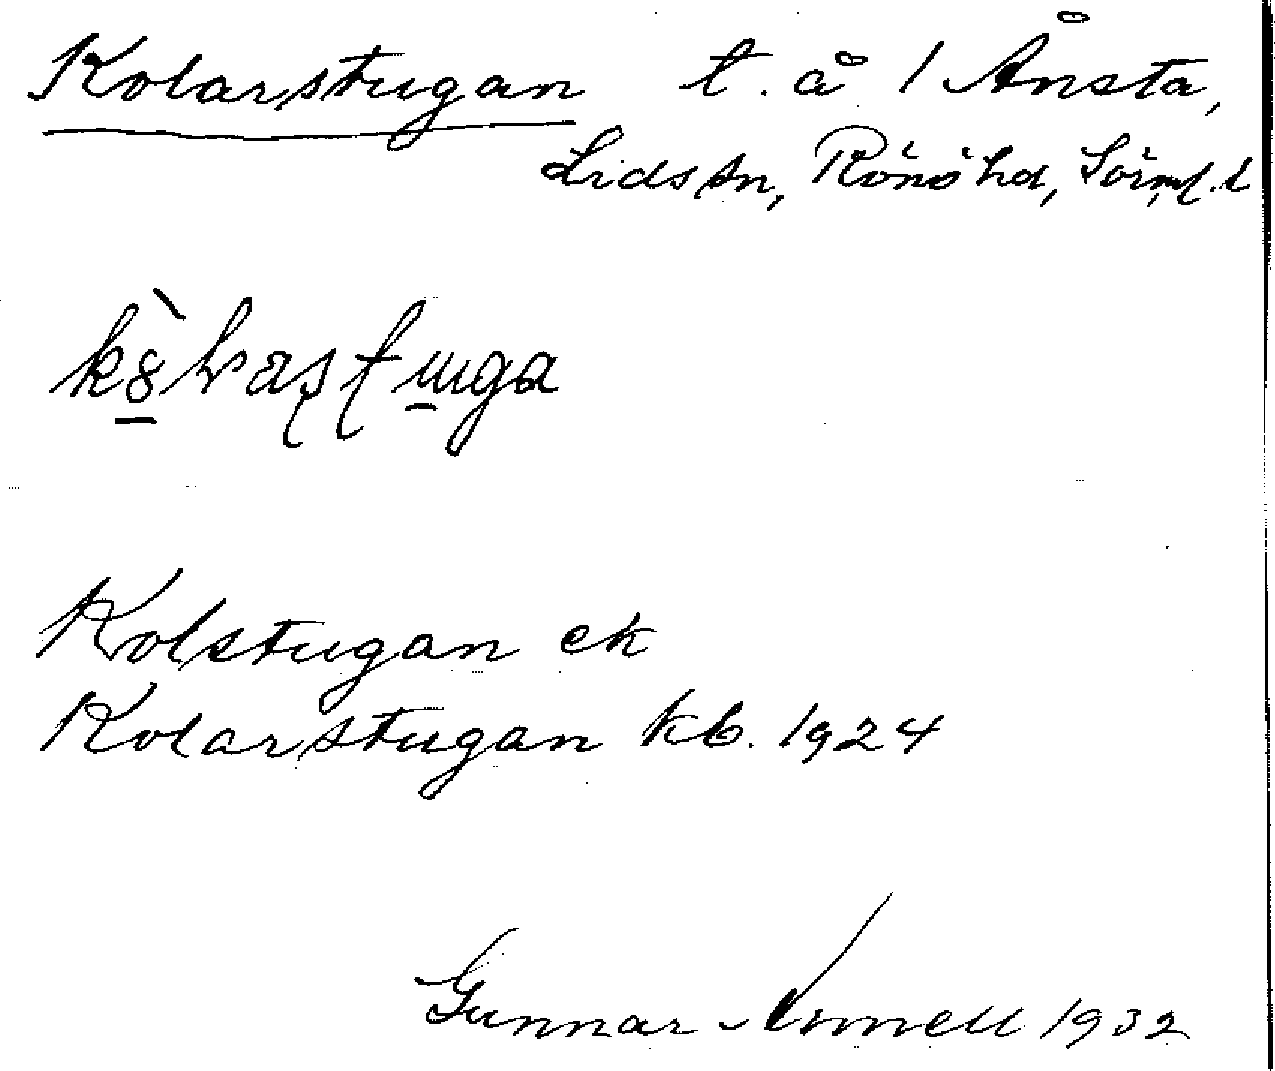 Kolarstugan t. å 1 Ånsta,
Lids sn, Rönö hd, Sörml. l
Kolstugan ek
Kolarstugan kb. 1924
Gunnar 1932